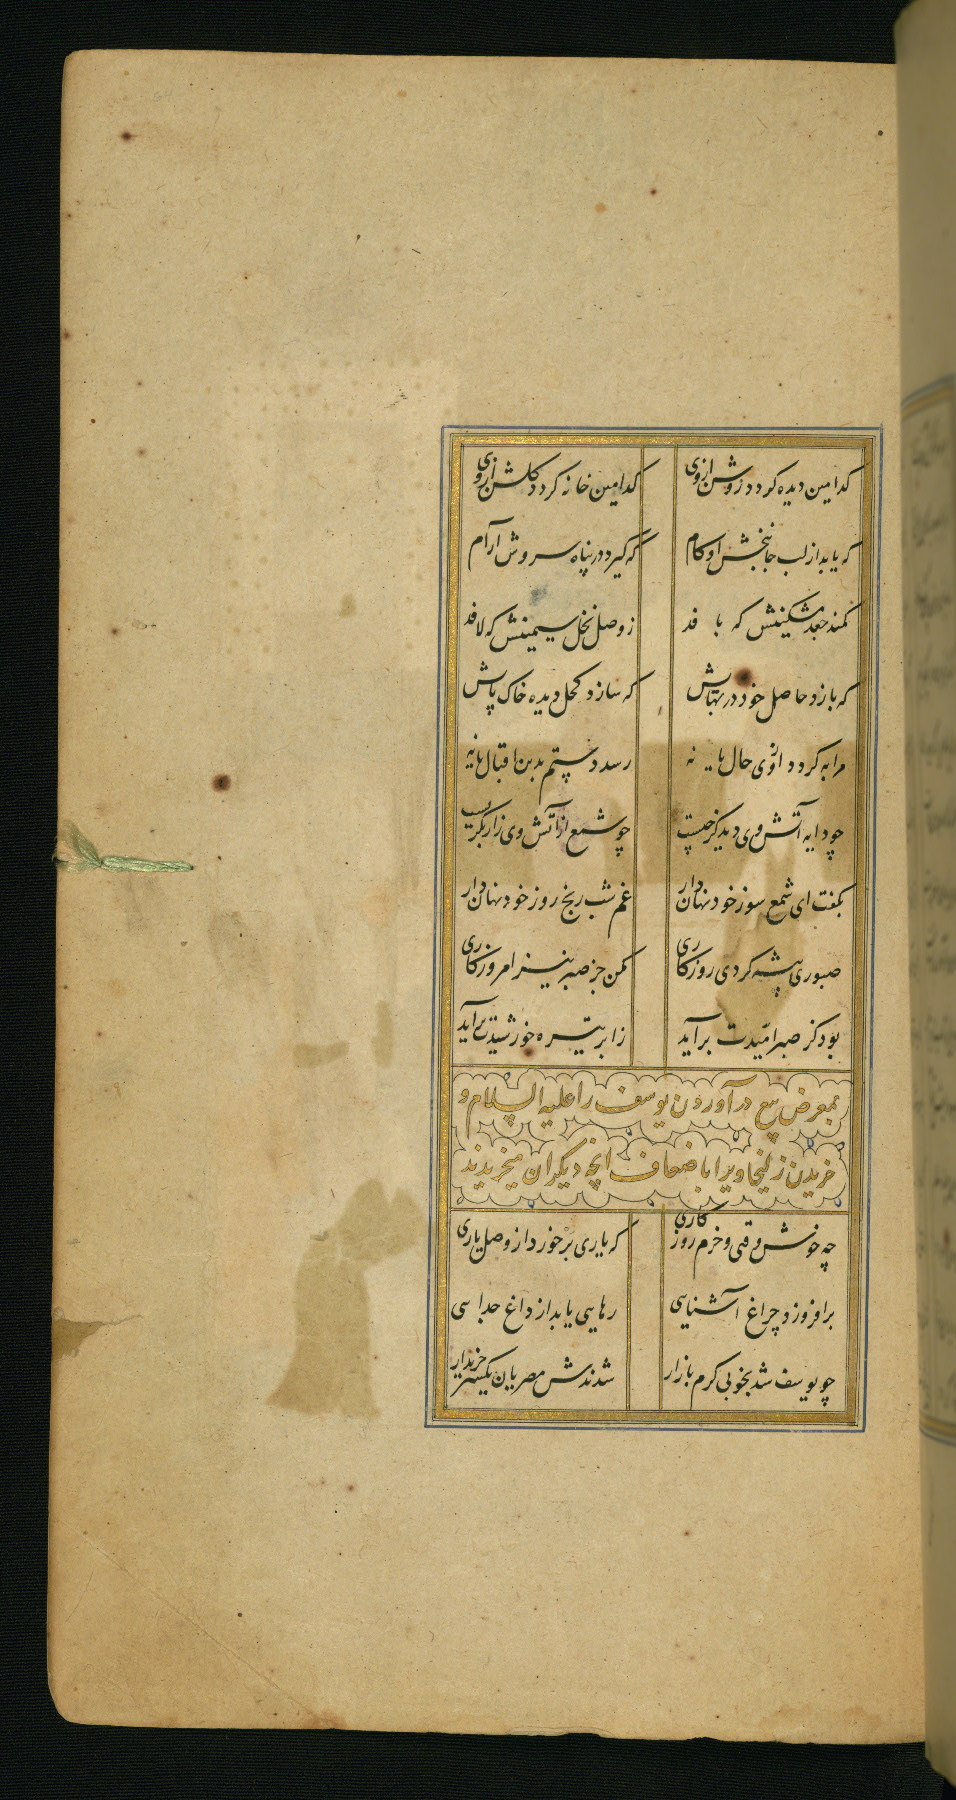 کدامین دیده گردد روشن از وی کدامین خانه گردد گلشن از وی
که یابد از لب جانبخش او کام که گیرد در پناه سروش آرام
کمند جعد مشکینش که با فد ز وصل نخل سیمینش که لافد
که بازد حاصل خود در بهایش که سازد کحل دیده خاک پاش
مرا به گردد از وی حال یا نه رسد دستم بدین اقبال یا نه
چو دایه آتش وی دید کز چیست چو شمع از آتش وی زار بگریست
بگفت ای شمع سوز خود نهان دار غم شب رنج روز خود نهان دار
صبوری پیشه کردی روزگاری مکن جز صبر نیز امروز کاری
بود کز صبر امیدت برآید ز ابر تیره خورشیدت برآید
بمعرض بیع در آوردن یوسف را علیه السلام و
خریدن زلیخا ویرا باضعاف انچه دیگران میخریدند
چه خوش وقتی و خرم روزگاری که یاری برخورد از وصل یاری
برافروزد چراغ آشنایی رهایی یابد از داغ جدایی
چو یوسف شد بخوبی گرم بازار شدندش مصریان یکسر خریدار